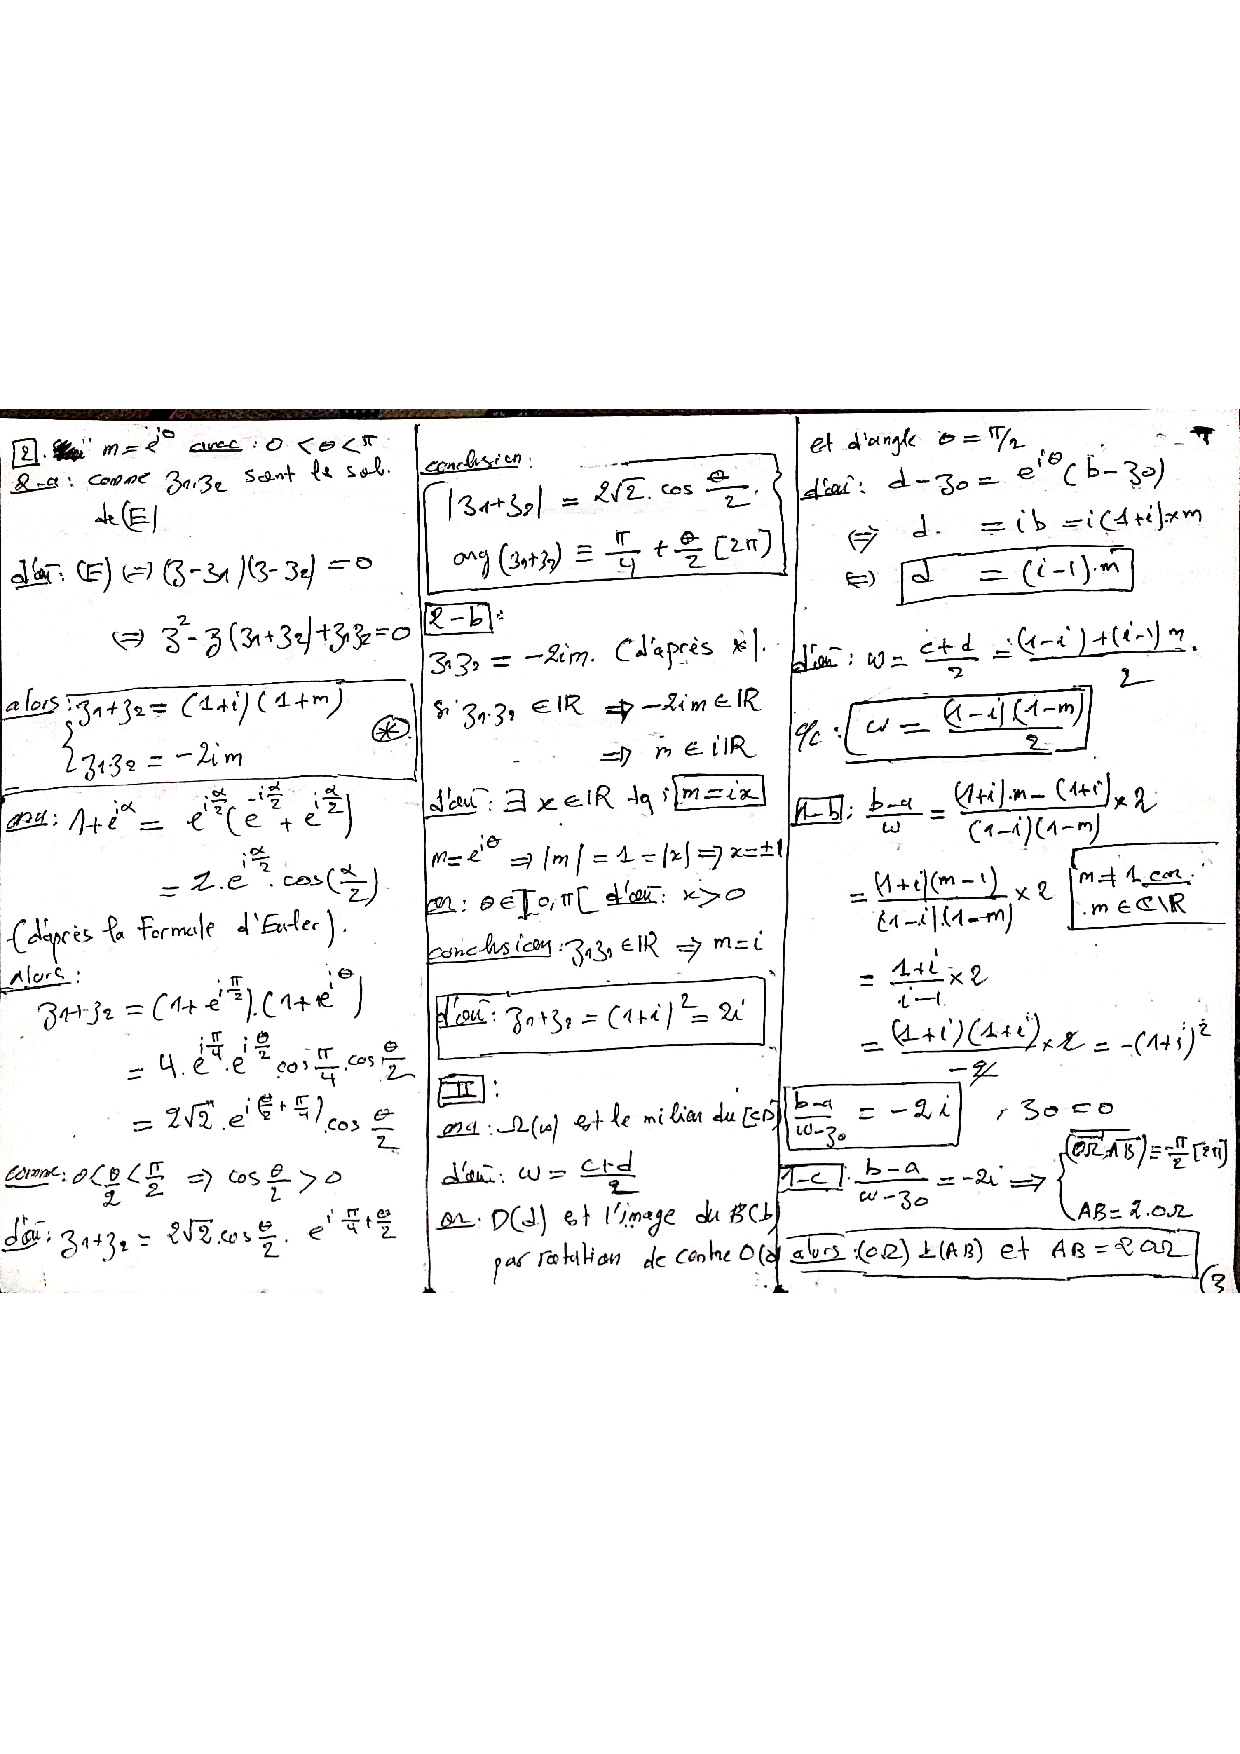 2. m = e^{iθ} avec : 0 < θ < π
2-a : comme z1.z2 sont le sol.
de (E)
d'où : (E) ⇔ (z - z1)(z - z2) = 0
⇔ z² - z(z1+z2) + z1z2 = 0
alors : { z1+z2 = (1+i)(1+m)
z1z2 = -2im (*)
ona : 1+e^{iα} = e^{iα/2}(e^{-iα/2} + e^{iα/2})
= 2.e^{iα/2}.cos(α/2)
(d'après la Formule d'Euler).
Alors :
z1+z2 = (1+e^{iπ/2}).(1+e^{iθ})
= 4.e^{iπ/4}.e^{iθ/2} cos π/4 . cos θ/2
= 2√2.e^{i(θ/2+π/4)}.cos θ/2
comme : 0 < θ/2 < π/2 ⇒ cos θ/2 > 0
d'où : z1+z2 = 2√2.cos θ/2 . e^{i π/4+θ/2}
conclusion :
|z1+z2| = 2√2.cos θ/2.
arg(z1+z2) ≡ π/4 + θ/2 [2π]
2-b :
z1z2 = -2im. (d'après *).
si z1.z2 ∈ IR ⇒ -2im ∈ IR
⇒ m ∈ iIR
d'où : ∃ x ∈ IR tq : m = ix
m = e^{iθ} ⇒ |m| = 1 = |x| ⇒ x = ±1
or : θ ∈ ]0,π[ d'où : x > 0
conclusion : z1z2 ∈ IR ⇒ m = i
d'où : z1+z2 = (1+i)² = 2i
II :
ona : Ω(ω) est le milieu du [CD]
d'où : ω = (c+d)/2
or : D(d) est l'image du B(b)
par rotation de centre O(
et d'angle θ = π/2
d'où : d - z0 = e^{iθ}(b - z0)
⇔ d. = ib = i(1+i)×m
⇔ d = (i-1).m
d'où : ω = (c+d)/2 = ((1-i)+(i-1)m)/2.
ω = (1-i)(1-m)/2
1-b : (b-a)/ω = ((1+i).m - (1+i))/((1-i)(1-m)) × 2
= (1+i)(m-1)/((1-i)(1-m)) × 2
m ≠ 1 car.
m ∈ ℂ\IR
= (1+i)/(i-1) × 2
= (1+i)(1+i)/(-2) × 2 = -(1+i)²
(b-a)/(ω-z0) = -2i , z0 = 0
1-c : (b-a)/(ω-z0) = -2i ⇒ { (OΩ,AB) ≡ -π/2 [2π]
AB = 2.OΩ
alors : (OΩ) ⊥ (AB) et AB = 2OΩ
(3